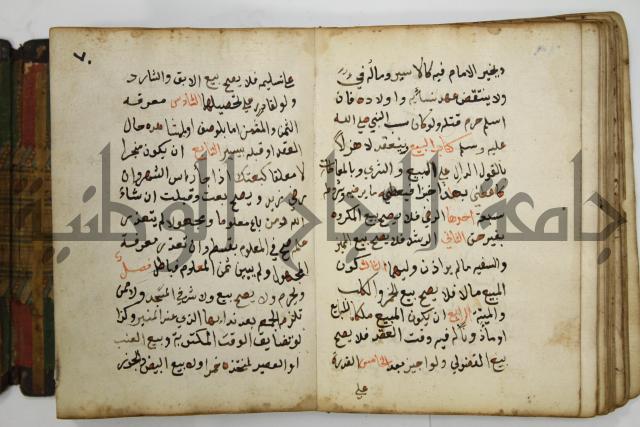 ويخير الامام فيه كالاسير وماله في
ولا ينتقض عهد نسائه واولاده فان
اسلم حرم قتله ولو كان سب النبي صلى الله
عليه وسلم كتاب البيع وينعقد لا هزلا
بالقول الدال على البيع والشرى وبالمعاطاة
سبعة احدها الرضى فلا يصح بيع المكره
بغير حق الثاني الرشد فلا يصح بيع المميز
والسفيه مالم ياذن وليهما الثالث كون
المبيع مالا فلا يصح بيع الخمر والكلب
والميتة الرابع ان يكون المبيع ملكا للبايع
او ماذونا له فيه وقت العقد فلا يصح
بيع الفضولي ولو اجيز بعد الخامس القدرة
على
٧٠
على تسليمه فلا يصح بيع الابق والشارد
ولو لقادر على تحصيلهما السادس معرفة
الثمن والمثمن اما بالوصف او المشاهدة حال
العقد او قبله بيسير السابع ان يكون منجزا
لا معلقا كبعتك اذا جاء راس الشهر او ان
رضي زيد ويصح بعت وقبلت ان شاء
الله ومن باع معلوما ومجهولا لم يتعذر
علمه صح في المعلوم بقسطه وان تعذر معرفة
المجهول ولم يبين ثمن المعلوم فباطل فصل
ويحرم ولا يصح بيع ولا شراء في المسجد ولا ممن
تلزمه الجمعة بعد ندائها الذي عند المنبر وكذا
لو تضايق الوقت المكتوبة وبيع العنب
او العصير لمتخذه خمرا ولا بيع البيض والجوز
جامعة النجاح الوطنية